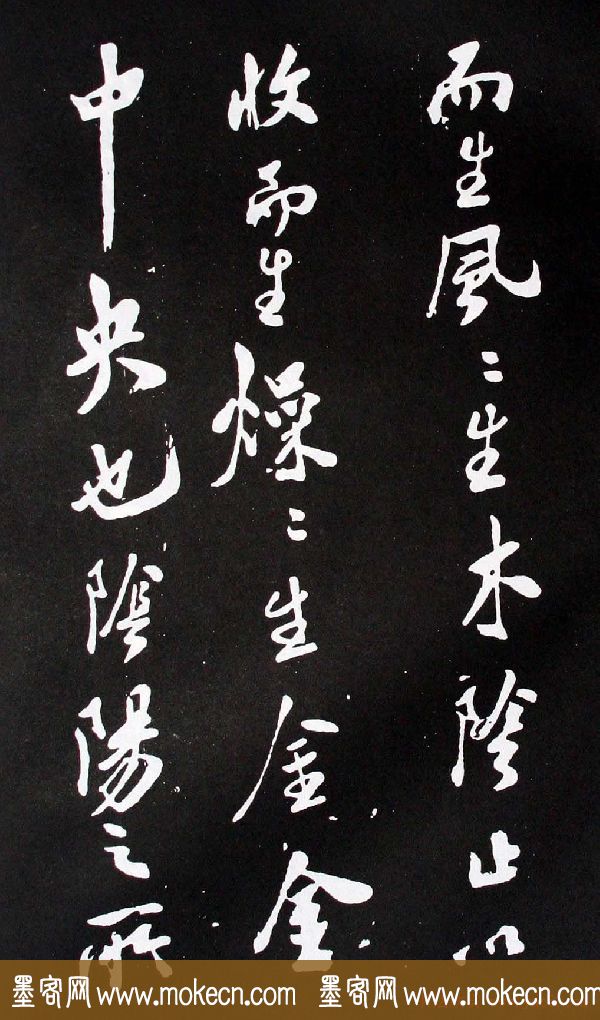 而生風〻生木陰止以
收而生燥〻生金金
中央也陰陽之所
墨客网 www.mokecn.com 墨客网 www.mokecn.com